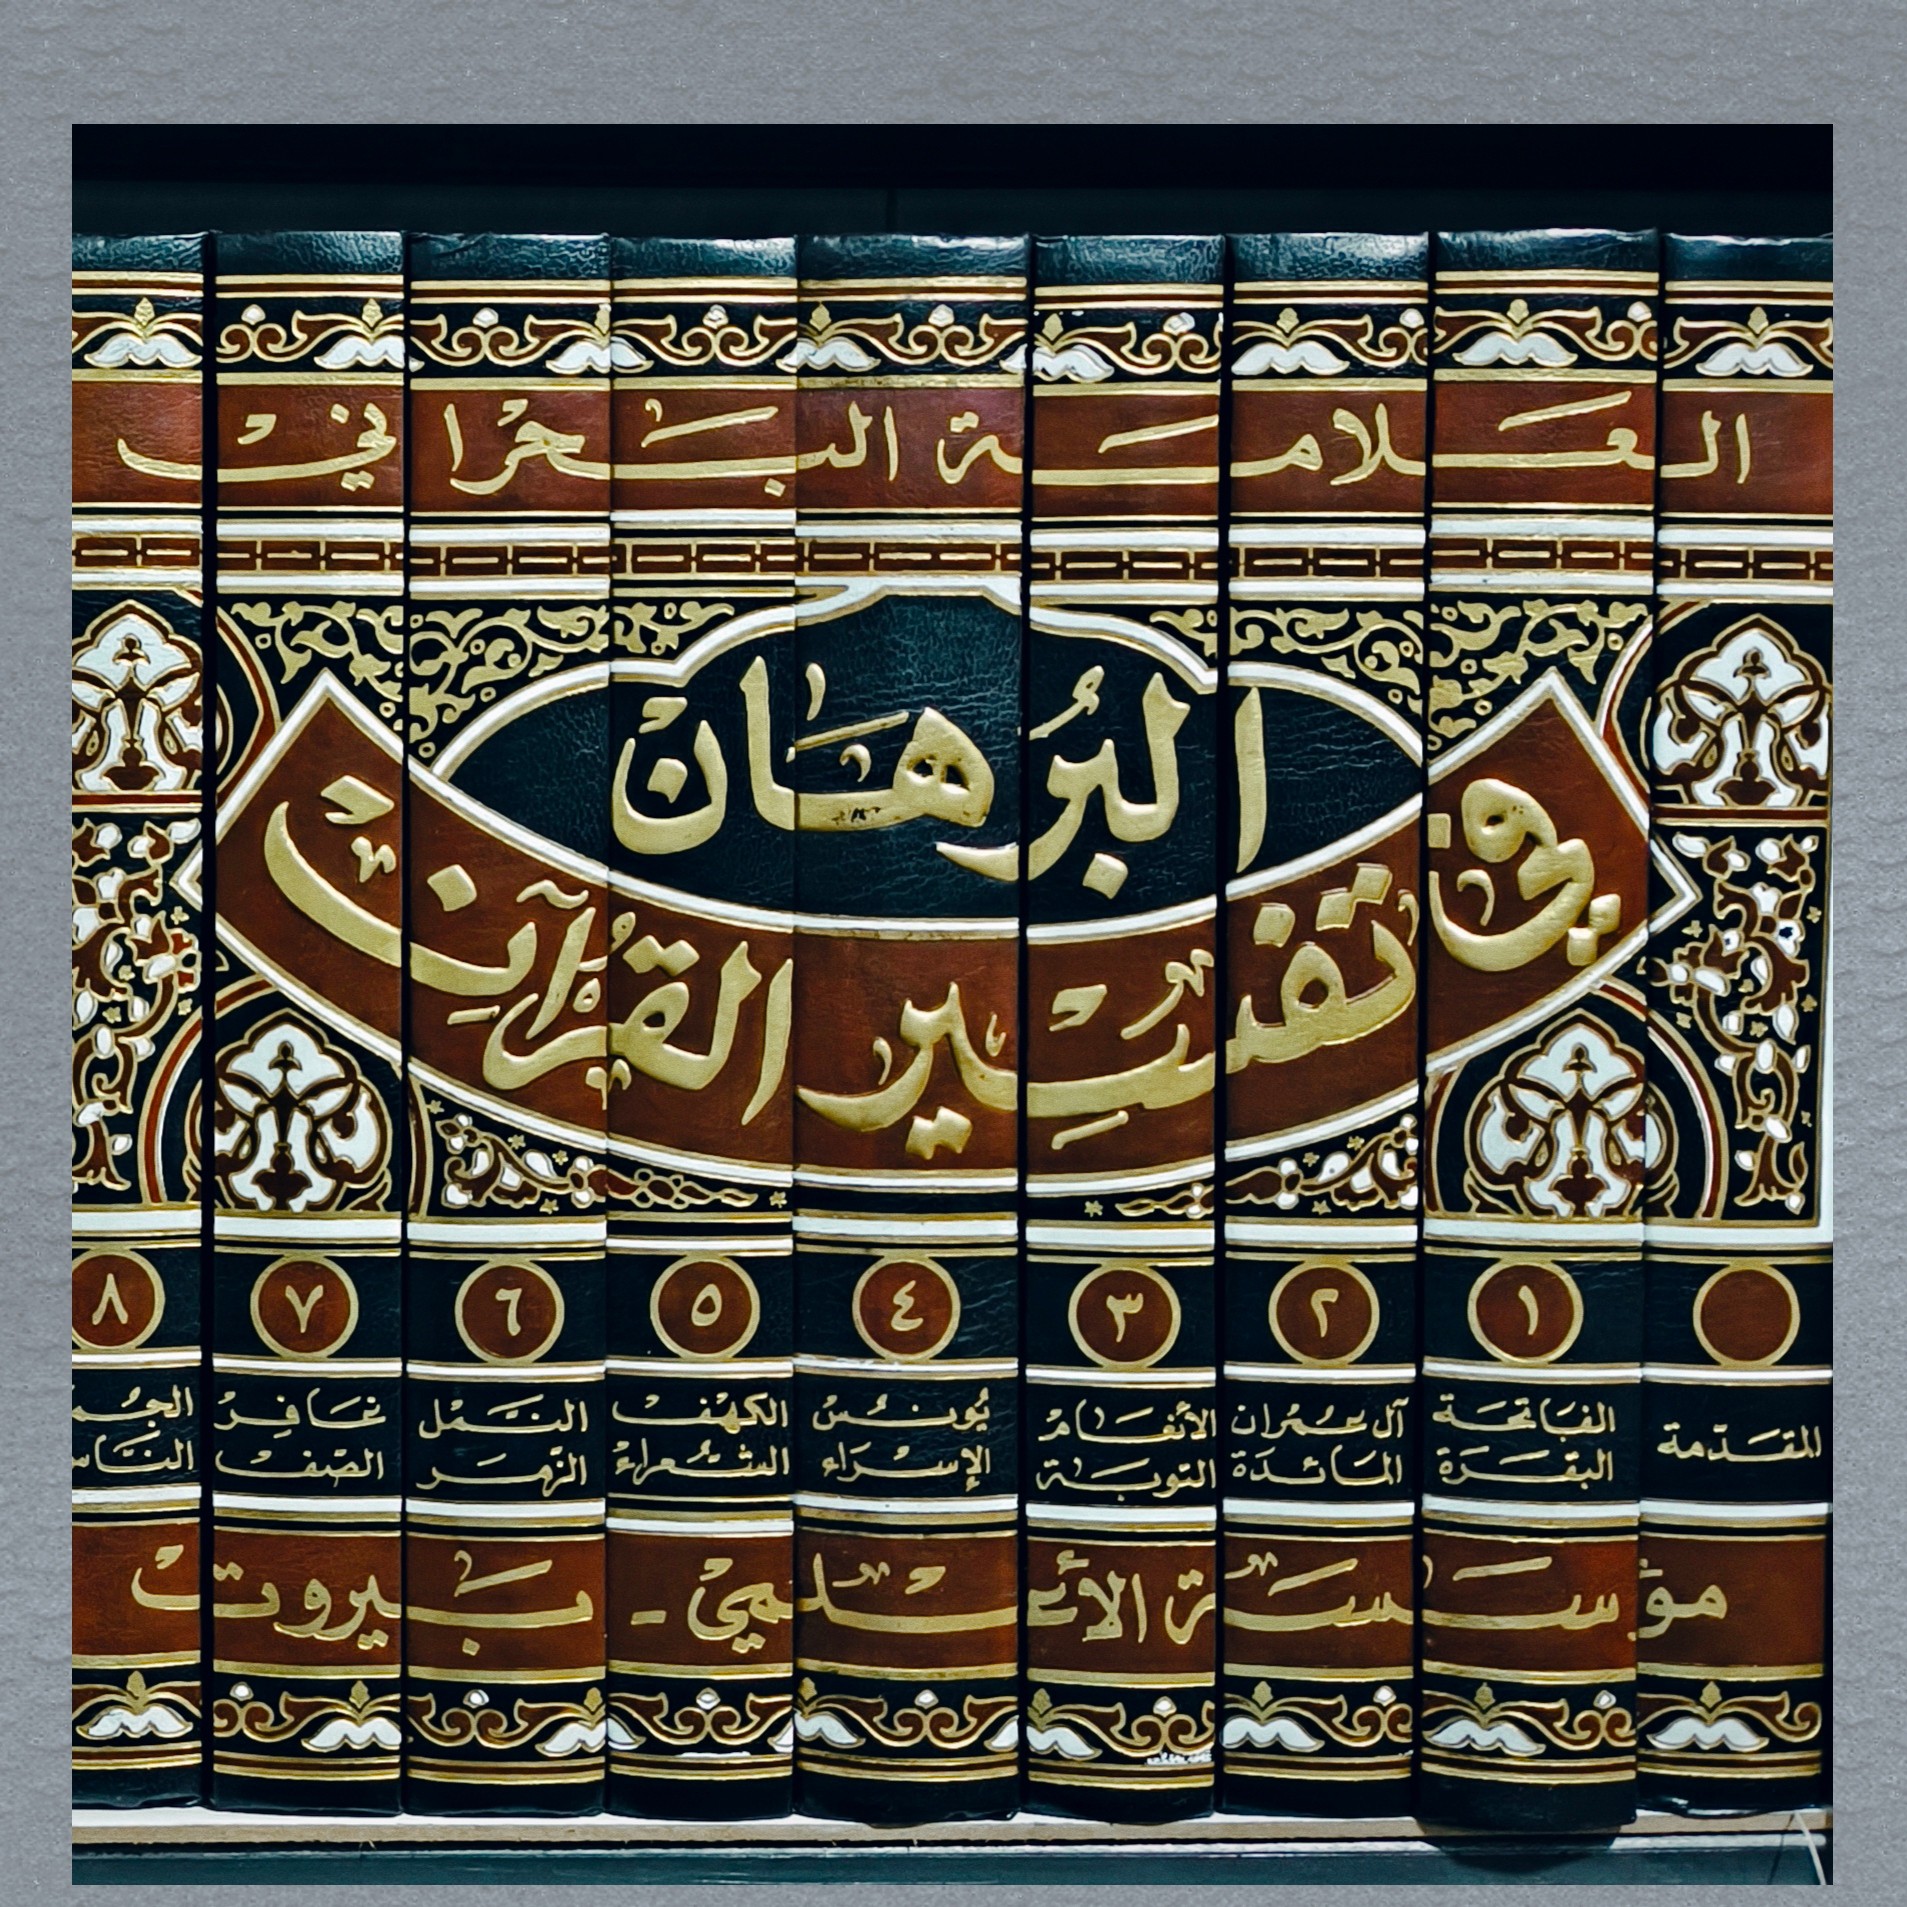 العلامة البحراني
البرهان
في تفسير القرآن
١ ٢ ٣ ٤ ٥ ٦ ٧ ٨
المقدمة
الفاتحة
البقرة
آل عمران
المائدة
الأنعام
التوبة
يونس
الإسراء
الكهف
الشعراء
النمل
الزمر
غافر
الصف
الجم
الناس
مؤسسة الأعلمي - بيروت